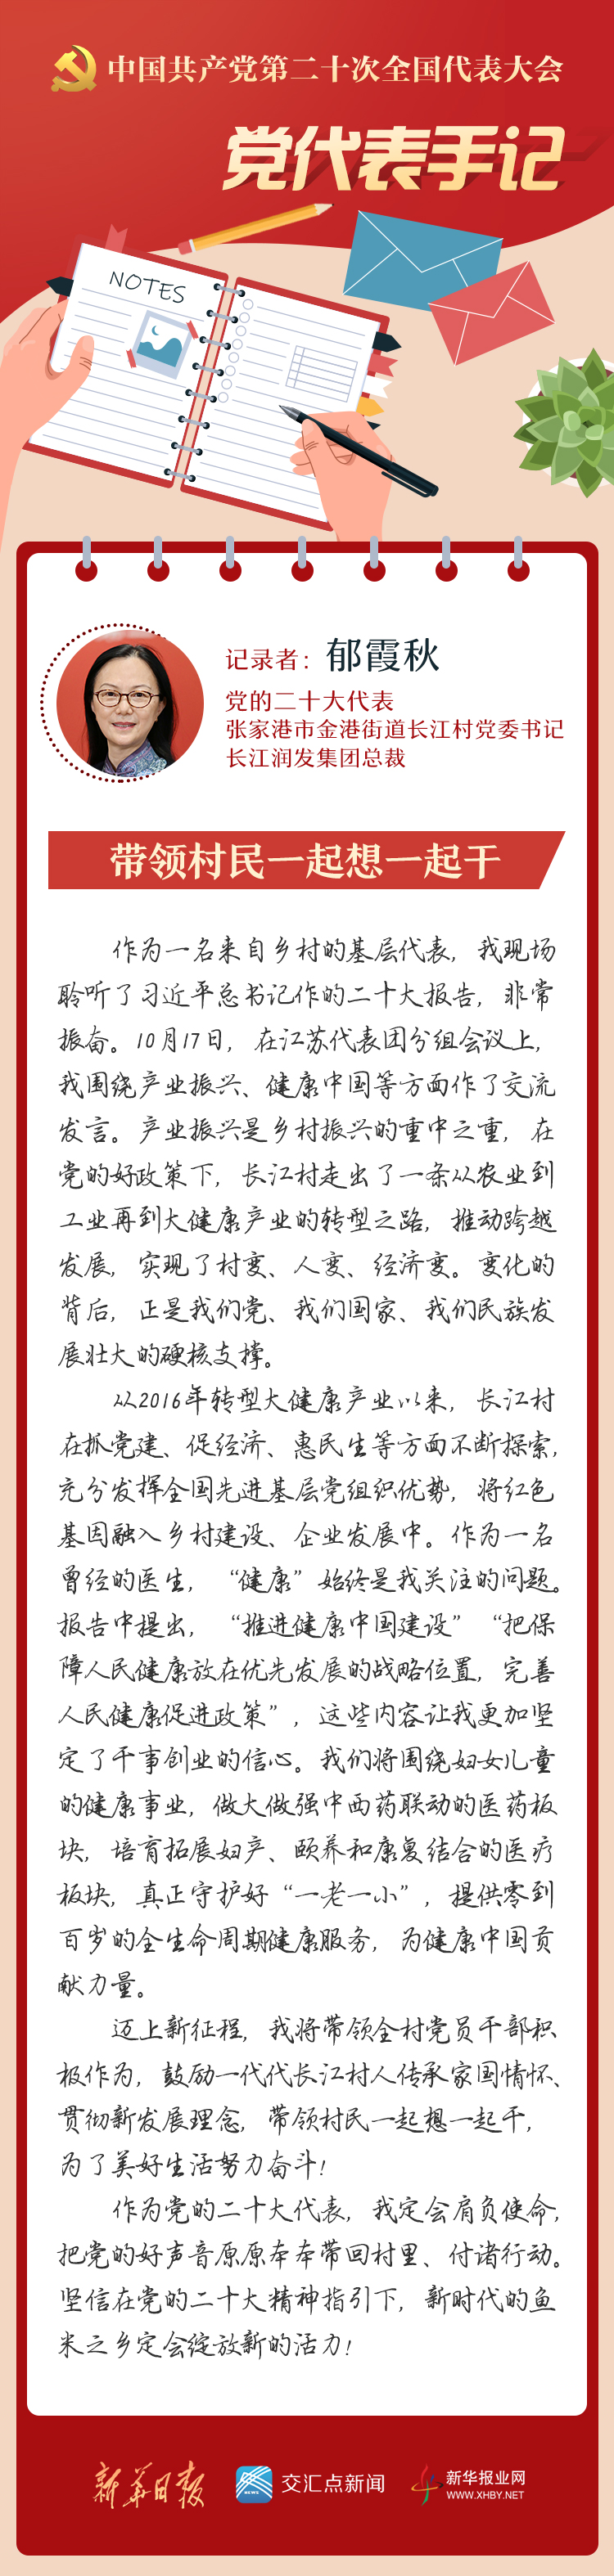 中国共产党第二十次全国代表大会
党代表手记
NOTES
记录者：郁霞秋
党的二十大代表
张家港市金港街道长江村党委书记
长江润发集团总裁
带领村民一起想一起干
作为一名来自乡村的基层代表，我现场
聆听了习近平总书记作的二十大报告，非常
振奋。10月17日，在江苏代表团分组会议上，
我围绕产业振兴、健康中国等方面作了交流
发言。产业振兴是乡村振兴的重中之重，在
党的好政策下，长江村走出了一条从农业到
工业再到大健康产业的转型之路，推动跨越
发展，实现了村变、人变、经济变。变化的
背后，正是我们党、我们国家、我们民族发
展壮大的硬核支撑。
从2016年转型大健康产业以来，长江村
在抓党建、促经济、惠民生等方面不断探索，
充分发挥全国先进基层党组织优势，将红色
基因融入乡村建设、企业发展中。作为一名
曾经的医生，“健康”始终是我关注的问题。
报告中提出，“推进健康中国建设”“把保
障人民健康放在优先发展的战略位置，完善
人民健康促进政策”，这些内容让我更加坚
定了干事创业的信心。我们将围绕妇女儿童
的健康事业，做大做强中西药联动的医药板
块，培育拓展妇产、颐养和康复结合的医疗
板块，真正守护好“一老一小”，提供零到
百岁的全生命周期健康服务，为健康中国贡
献力量。
迈上新征程，我将带领全村党员干部积
极作为，鼓励一代代长江村人传承家国情怀、
贯彻新发展理念，带领村民一起想一起干，
为了美好生活努力奋斗！
作为党的二十大代表，我定会肩负使命，
把党的好声音原原本本带回村里、付诸行动。
坚信在党的二十大精神指引下，新时代的鱼
米之乡定会绽放新的活力！
新华日报
交汇点新闻
新华报业网
WWW.XHBY.NET